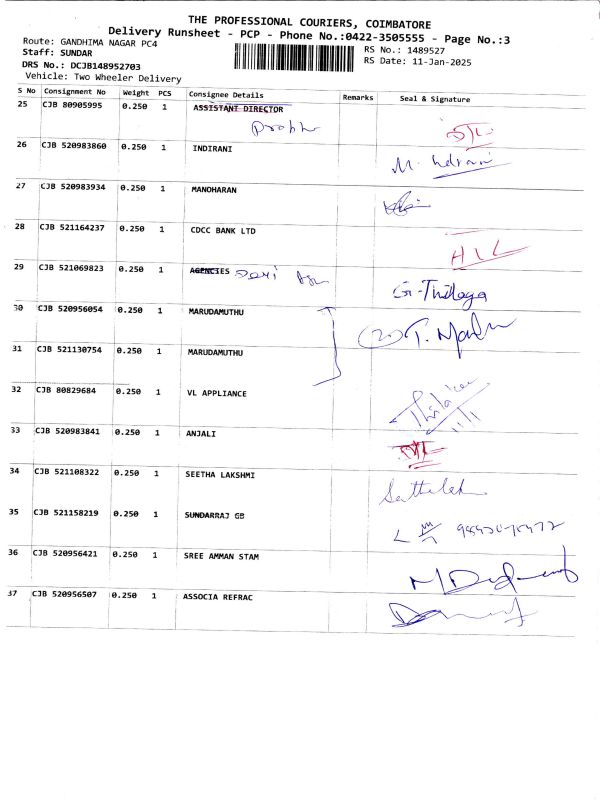 THE PROFESSIONAL COURIERS, COIMBATORE
Delivery Runsheet - PCP - Phone No.:0422-3505555 - Page No.:3
Route: GANDHIMA NAGAR PC4
RS No.: 1489527
Staff: SUNDAR
RS Date: 11-Jan-2025
DRS No.: DCJB148952703
Vehicle: Two Wheeler Delivery
S No Consignment No Weight PCS Consignee Details Remarks Seal & Signature
25 CJB 80905995 0.250 1 ASSISTANT DIRECTOR
26 CJB 520983860 0.250 1 INDIRANI
M. Indrani
27 CJB 520983934 0.250 1 MANOHARAN
28 CJB 521164237 0.250 1 CDCC BANK LTD
29 CJB 521069823 0.250 1 AGENCIES
G-Thilaga
30 CJB 520956054 0.250 1 MARUDAMUTHU
31 CJB 521130754 0.250 1 MARUDAMUTHU
32 CJB 80829684 0.250 1 VL APPLIANCE
33 CJB 520983841 0.250 1 ANJALI
34 CJB 521108322 0.250 1 SEETHA LAKSHMI
35 CJB 521158219 0.250 1 SUNDARRAJ GB
36 CJB 520956421 0.250 1 SREE AMMAN STAM
37 CJB 520956507 0.250 1 ASSOCIA REFRAC